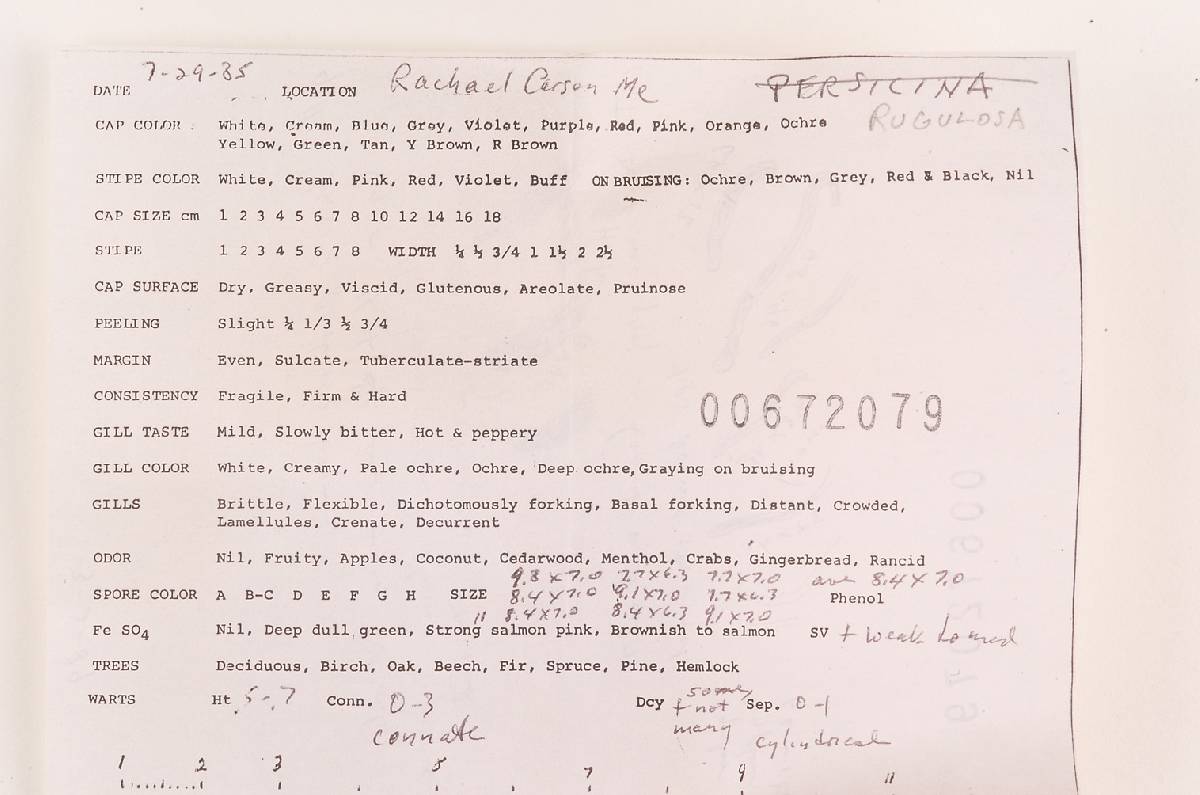 DATE 7-29-85 LOCATION Rachael Carson Me PERSICINA
RUGULOSA
CAP COLOR : White, Cream, Blue, Grey, Violet, Purple, Red, Pink, Orange, Ochre
Yellow, Green, Tan, Y Brown, R Brown
STIPE COLOR White, Cream, Pink, Red, Violet, Buff ON BRUISING: Ochre, Brown, Grey, Red & Black, Nil
CAP SIZE cm 1 2 3 4 5 6 7 8 10 12 14 16 18
STIPE 1 2 3 4 5 6 7 8 WIDTH ¼ ½ 3/4 1 1½ 2 2½
CAP SURFACE Dry, Greasy, Viscid, Glutenous, Areolate, Pruinose
PEELING Slight ¼ 1/3 ½ 3/4
MARGIN Even, Sulcate, Tuberculate-striate
CONSISTENCY Fragile, Firm & Hard
00672079
GILL TASTE Mild, Slowly bitter, Hot & peppery
GILL COLOR White, Creamy, Pale ochre, Ochre, Deep ochre, Graying on bruising
GILLS Brittle, Flexible, Dichotomously forking, Basal forking, Distant, Crowded,
Lamellules, Crenate, Decurrent
ODOR Nil, Fruity, Apples, Coconut, Cedarwood, Menthol, Crabs, Gingerbread, Rancid
9.8 x 7.0 7.7 x 6.3 7.7 x 7.0 ave 8.4 x 7.0
SPORE COLOR A B-C D E F G H SIZE 8.4 x 7.0 9.1 x 7.0 7.7 x 6.3 Phenol
11 8.4 x 7.0 8.4 x 6.3 9.1 x 7.0
Fe SO4 Nil, Deep dull green, Strong salmon pink, Brownish to salmon SV + weak to med
TREES Deciduous, Birch, Oak, Beech, Fir, Spruce, Pine, Hemlock
WARTS Ht .5-.7 Conn. 0-3 Dcy + some, not many Sep. 0-1
connate cylindrical
1 2 3 5 7 9 11